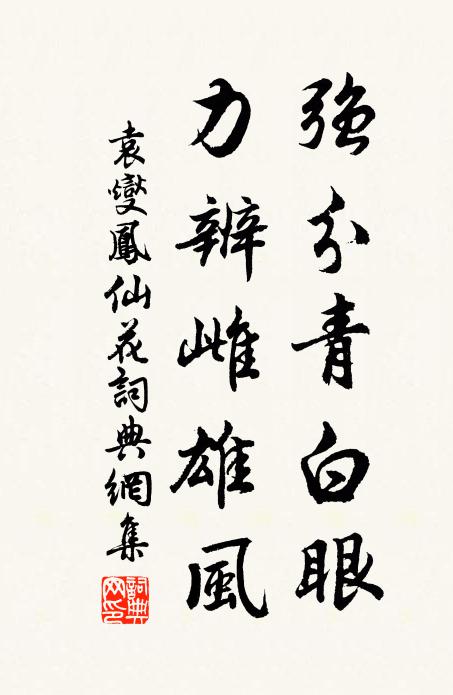 強分青白眼
力辨雌雄風
袁燮鳳仙花詞典網集
詞典
网印